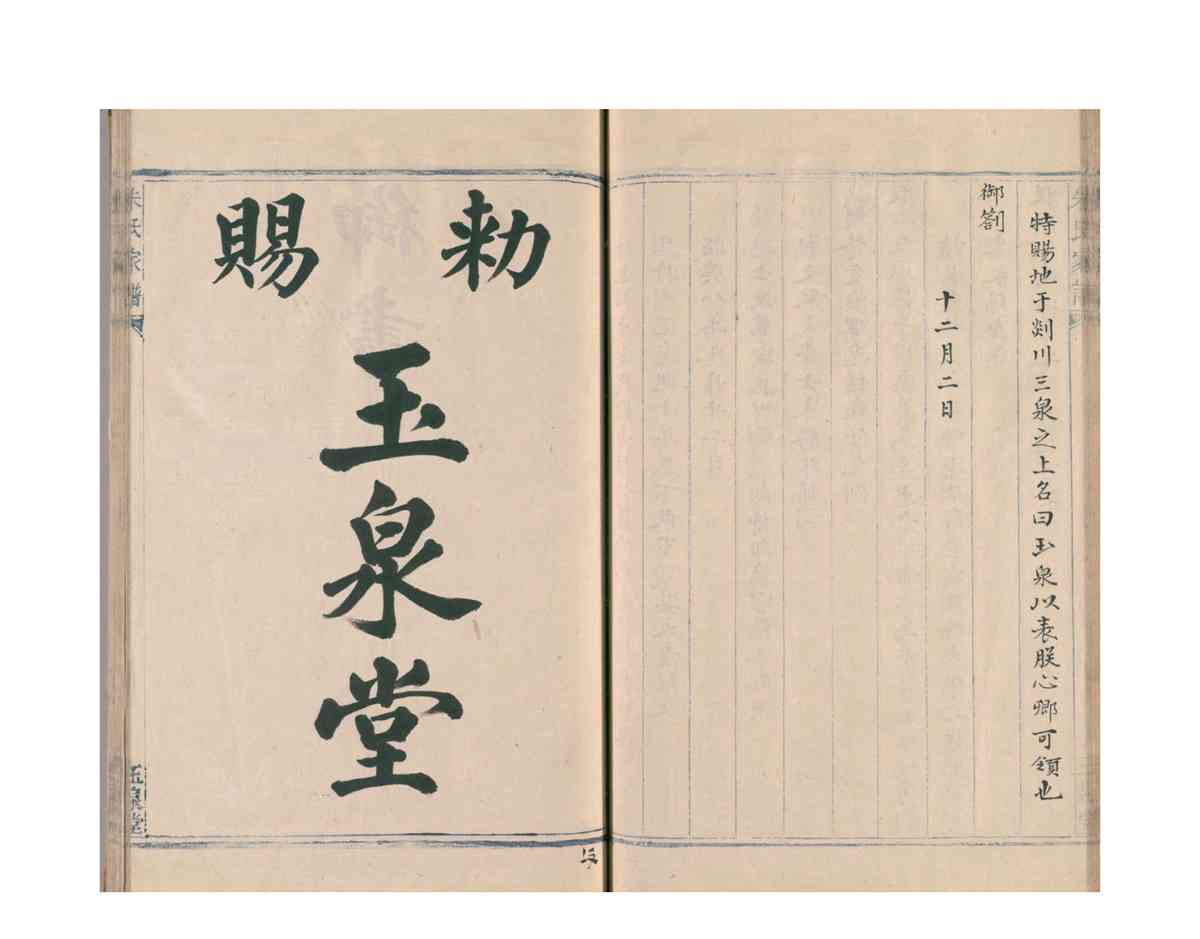 特賜地于剡川三泉之上名曰玉泉以表朕心卿可領也
御劄
十二月二日
勅
賜
玉泉堂
朱氏家譜
玉泉堂